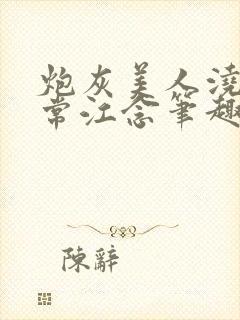 炮灰美人浇
常江念笔趣
陳辭